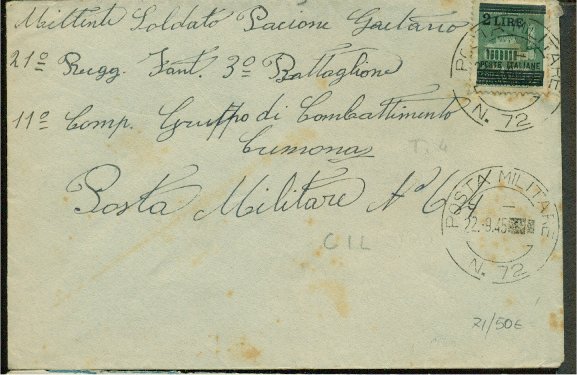 Mittente Soldato Pacione Gaetano
21º Regg. Fant. 3º Battaglione
11º Comp. Gruppo di Combattimento
Cremona
Posta Militare Nº
2 LIRE
POSTE ITALIANE
POSTA MILITARE
N. 72
Tr. 4
POSTA MILITARE
22.-9.45
N. 72
CIL
21/50€